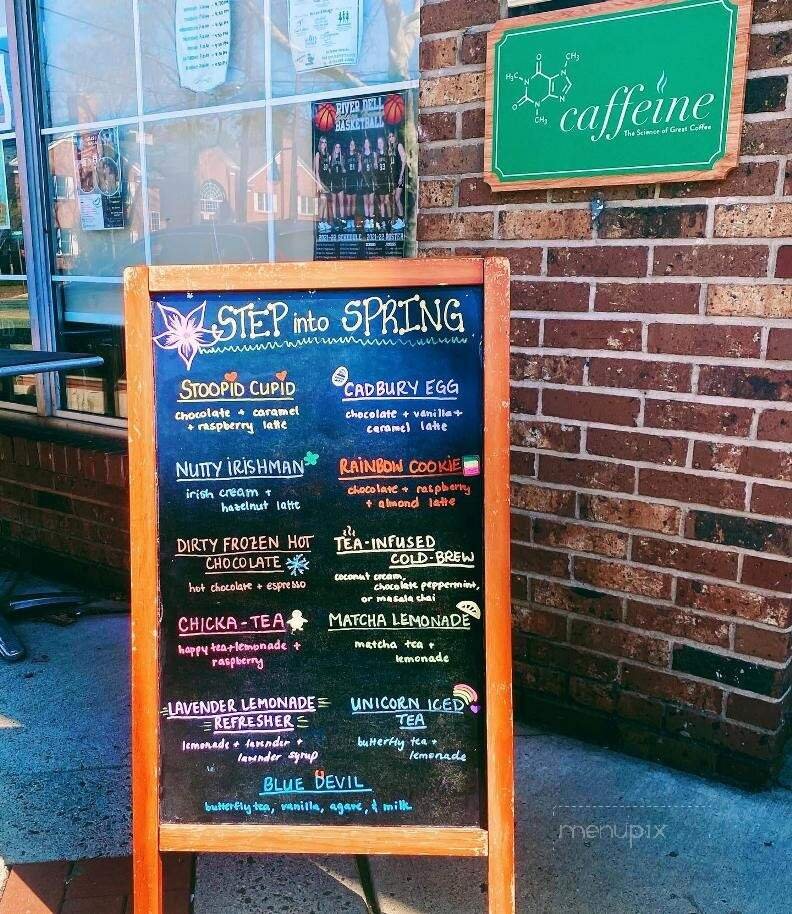 RIVER DELL
BASKETBALL
2021-22 SCHEDULE 2021-22 ROSTER
H₃C
O
CH₃
N
N
O
N
N
CH₃
caffeine
The Science of Great Coffee
STEP into SPRING
STOOPID CUPID
chocolate + caramel
+ raspberry latte
CADBURY EGG
chocolate + vanilla +
caramel latte
NUTTY IRISHMAN
irish cream +
hazelnut latte
RAINBOW COOKIE
chocolate + raspberry
+ almond latte
DIRTY FROZEN HOT
CHOCOLATE
hot chocolate + espresso
TEA-INFUSED
COLD-BREW
coconut cream,
chocolate peppermint,
or masala chai
CHICKA-TEA
happy tea + lemonade +
raspberry
MATCHA LEMONADE
matcha tea +
lemonade
LAVENDER LEMONADE
REFRESHER
lemonade + lavender +
lavender syrup
UNICORN ICED
TEA
butterfly tea +
lemonade
BLUE DEVIL
butterfly tea, vanilla, agave, & milk
menupix